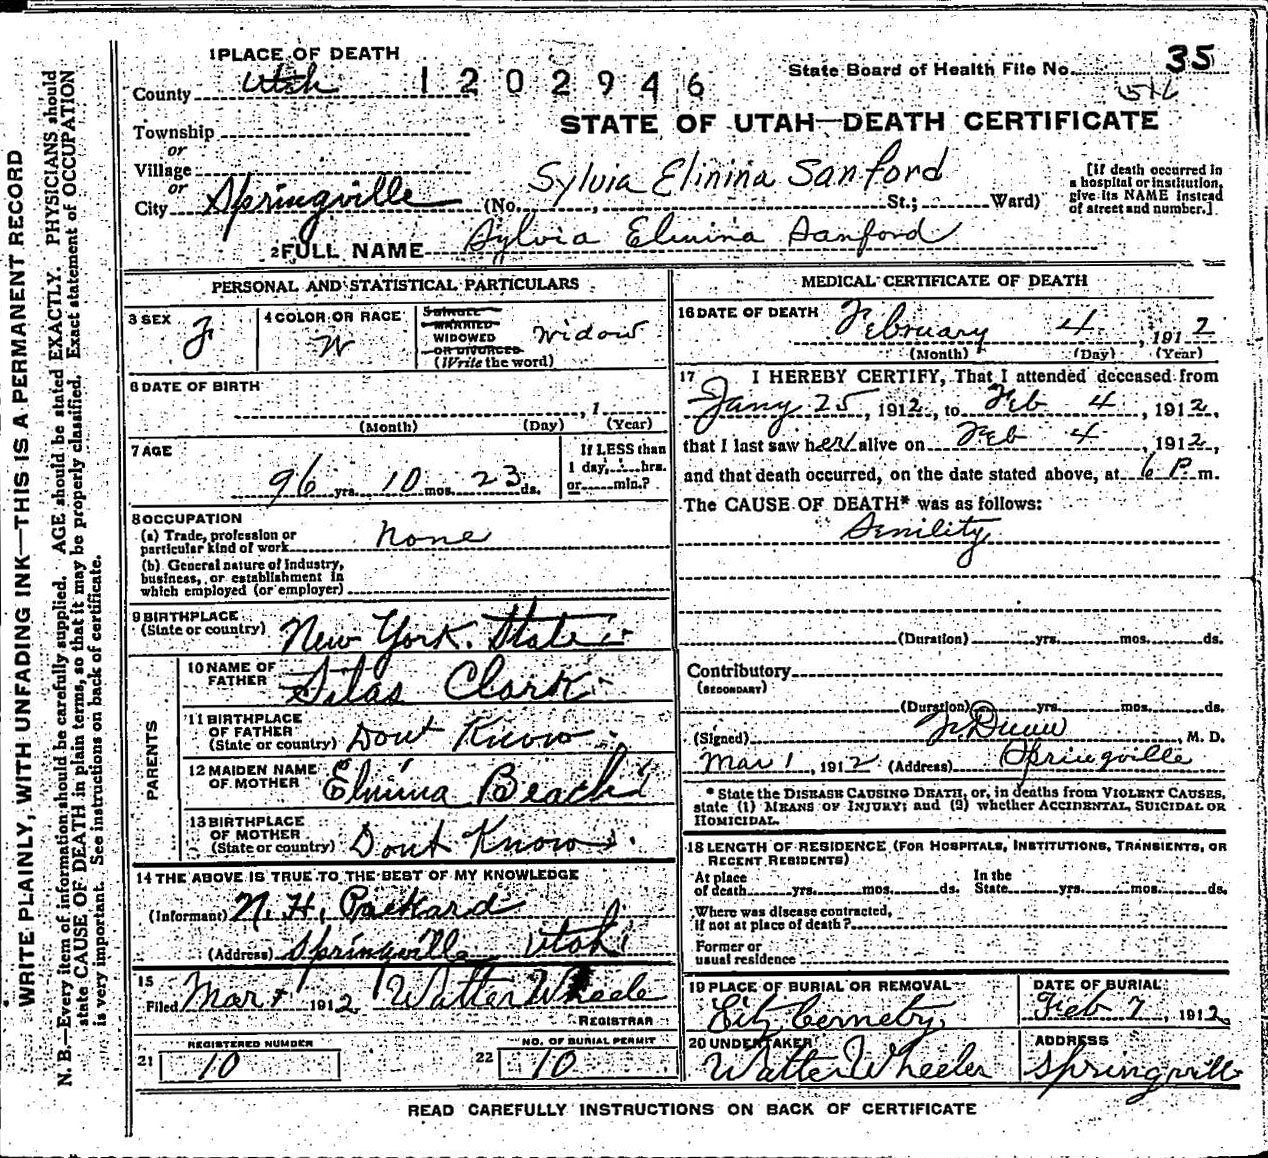 1 PLACE OF DEATH
County Utah 1202946
State Board of Health File No. 35
Township
or
Village
or
City Springville (No. , St.; Ward)
STATE OF UTAH—DEATH CERTIFICATE
Sylvia Elinina Sanford
[If death occurred in
a hospital or institution,
give its NAME instead
of street and number.]
2 FULL NAME Sylvia Elmina Sanford
PERSONAL AND STATISTICAL PARTICULARS
3 SEX F
4 COLOR OR RACE W
SINGLE
MARRIED
WIDOWED
OR DIVORCED
(Write the word) Widow
6 DATE OF BIRTH
, 1
(Month) (Day) (Year)
7 AGE
96 yrs. 10 mos. 23 ds.
If LESS than
1 day, hrs.
or min.?
8 OCCUPATION
(a) Trade, profession or
particular kind of work None
(b) General nature of Industry,
business, or establishment in
which employed (or employer)
9 BIRTHPLACE
(State or country) New York State
PARENTS
10 NAME OF
FATHER Silas Clark
11 BIRTHPLACE
OF FATHER
(State or country) Dont Know
12 MAIDEN NAME
OF MOTHER Elmina Beach
13 BIRTHPLACE
OF MOTHER
(State or country) Dont Know
14 THE ABOVE IS TRUE TO THE BEST OF MY KNOWLEDGE
(Informant) N. H. Packard
(Address) Springville Utah
15
Filed Mar 1912 Walter Wheele
REGISTRAR
REGISTERED NUMBER
21 10
NO. OF BURIAL PERMIT
22 10
MEDICAL CERTIFICATE OF DEATH
16 DATE OF DEATH February 4, 1912
(Month) (Day) (Year)
17 I HEREBY CERTIFY, That I attended deceased from
Jany 25, 1912, to Feb 4, 1912,
that I last saw her alive on Feb 4, 1912,
and that death occurred, on the date stated above, at 6 P. m.
The CAUSE OF DEATH* was as follows:
Senility
(Duration) yrs. mos. ds.
Contributory
(SECONDARY)
(Duration) yrs. mos. ds.
(Signed) Dunn M. D.
Mar 1, 1912 (Address) Springville
* State the DISEASE CAUSING DEATH, or, in deaths from VIOLENT CAUSES,
state (1) MEANS OF INJURY; and (2) whether ACCIDENTAL, SUICIDAL OR
HOMICIDAL.
18 LENGTH OF RESIDENCE (FOR HOSPITALS, INSTITUTIONS, TRANSIENTS, OR
RECENT RESIDENTS)
At place
of death yrs. mos. ds.
In the
State yrs. mos. ds.
Where was disease contracted,
if not at place of death?
Former or
usual residence
19 PLACE OF BURIAL OR REMOVAL
City Cemeby
DATE OF BURIAL
Feb 7, 1912
20 UNDERTAKER
Walter Wheeler
ADDRESS
Springville
READ CAREFULLY INSTRUCTIONS ON BACK OF CERTIFICATE
WRITE PLAINLY, WITH UNFADING INK—THIS IS A PERMANENT RECORD
N. B.—Every item of information should be carefully supplied. AGE should be stated EXACTLY. PHYSICIANS should
state CAUSE OF DEATH in plain terms, so that it may be properly classified. Exact statement of OCCUPATION
is very important. See instructions on back of certificate.